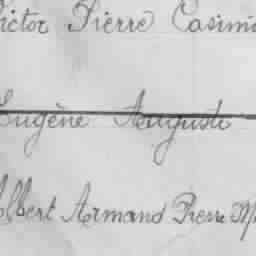 Victor Pierre Casimir
Eugène Auguste
Albert Armand Pierre M